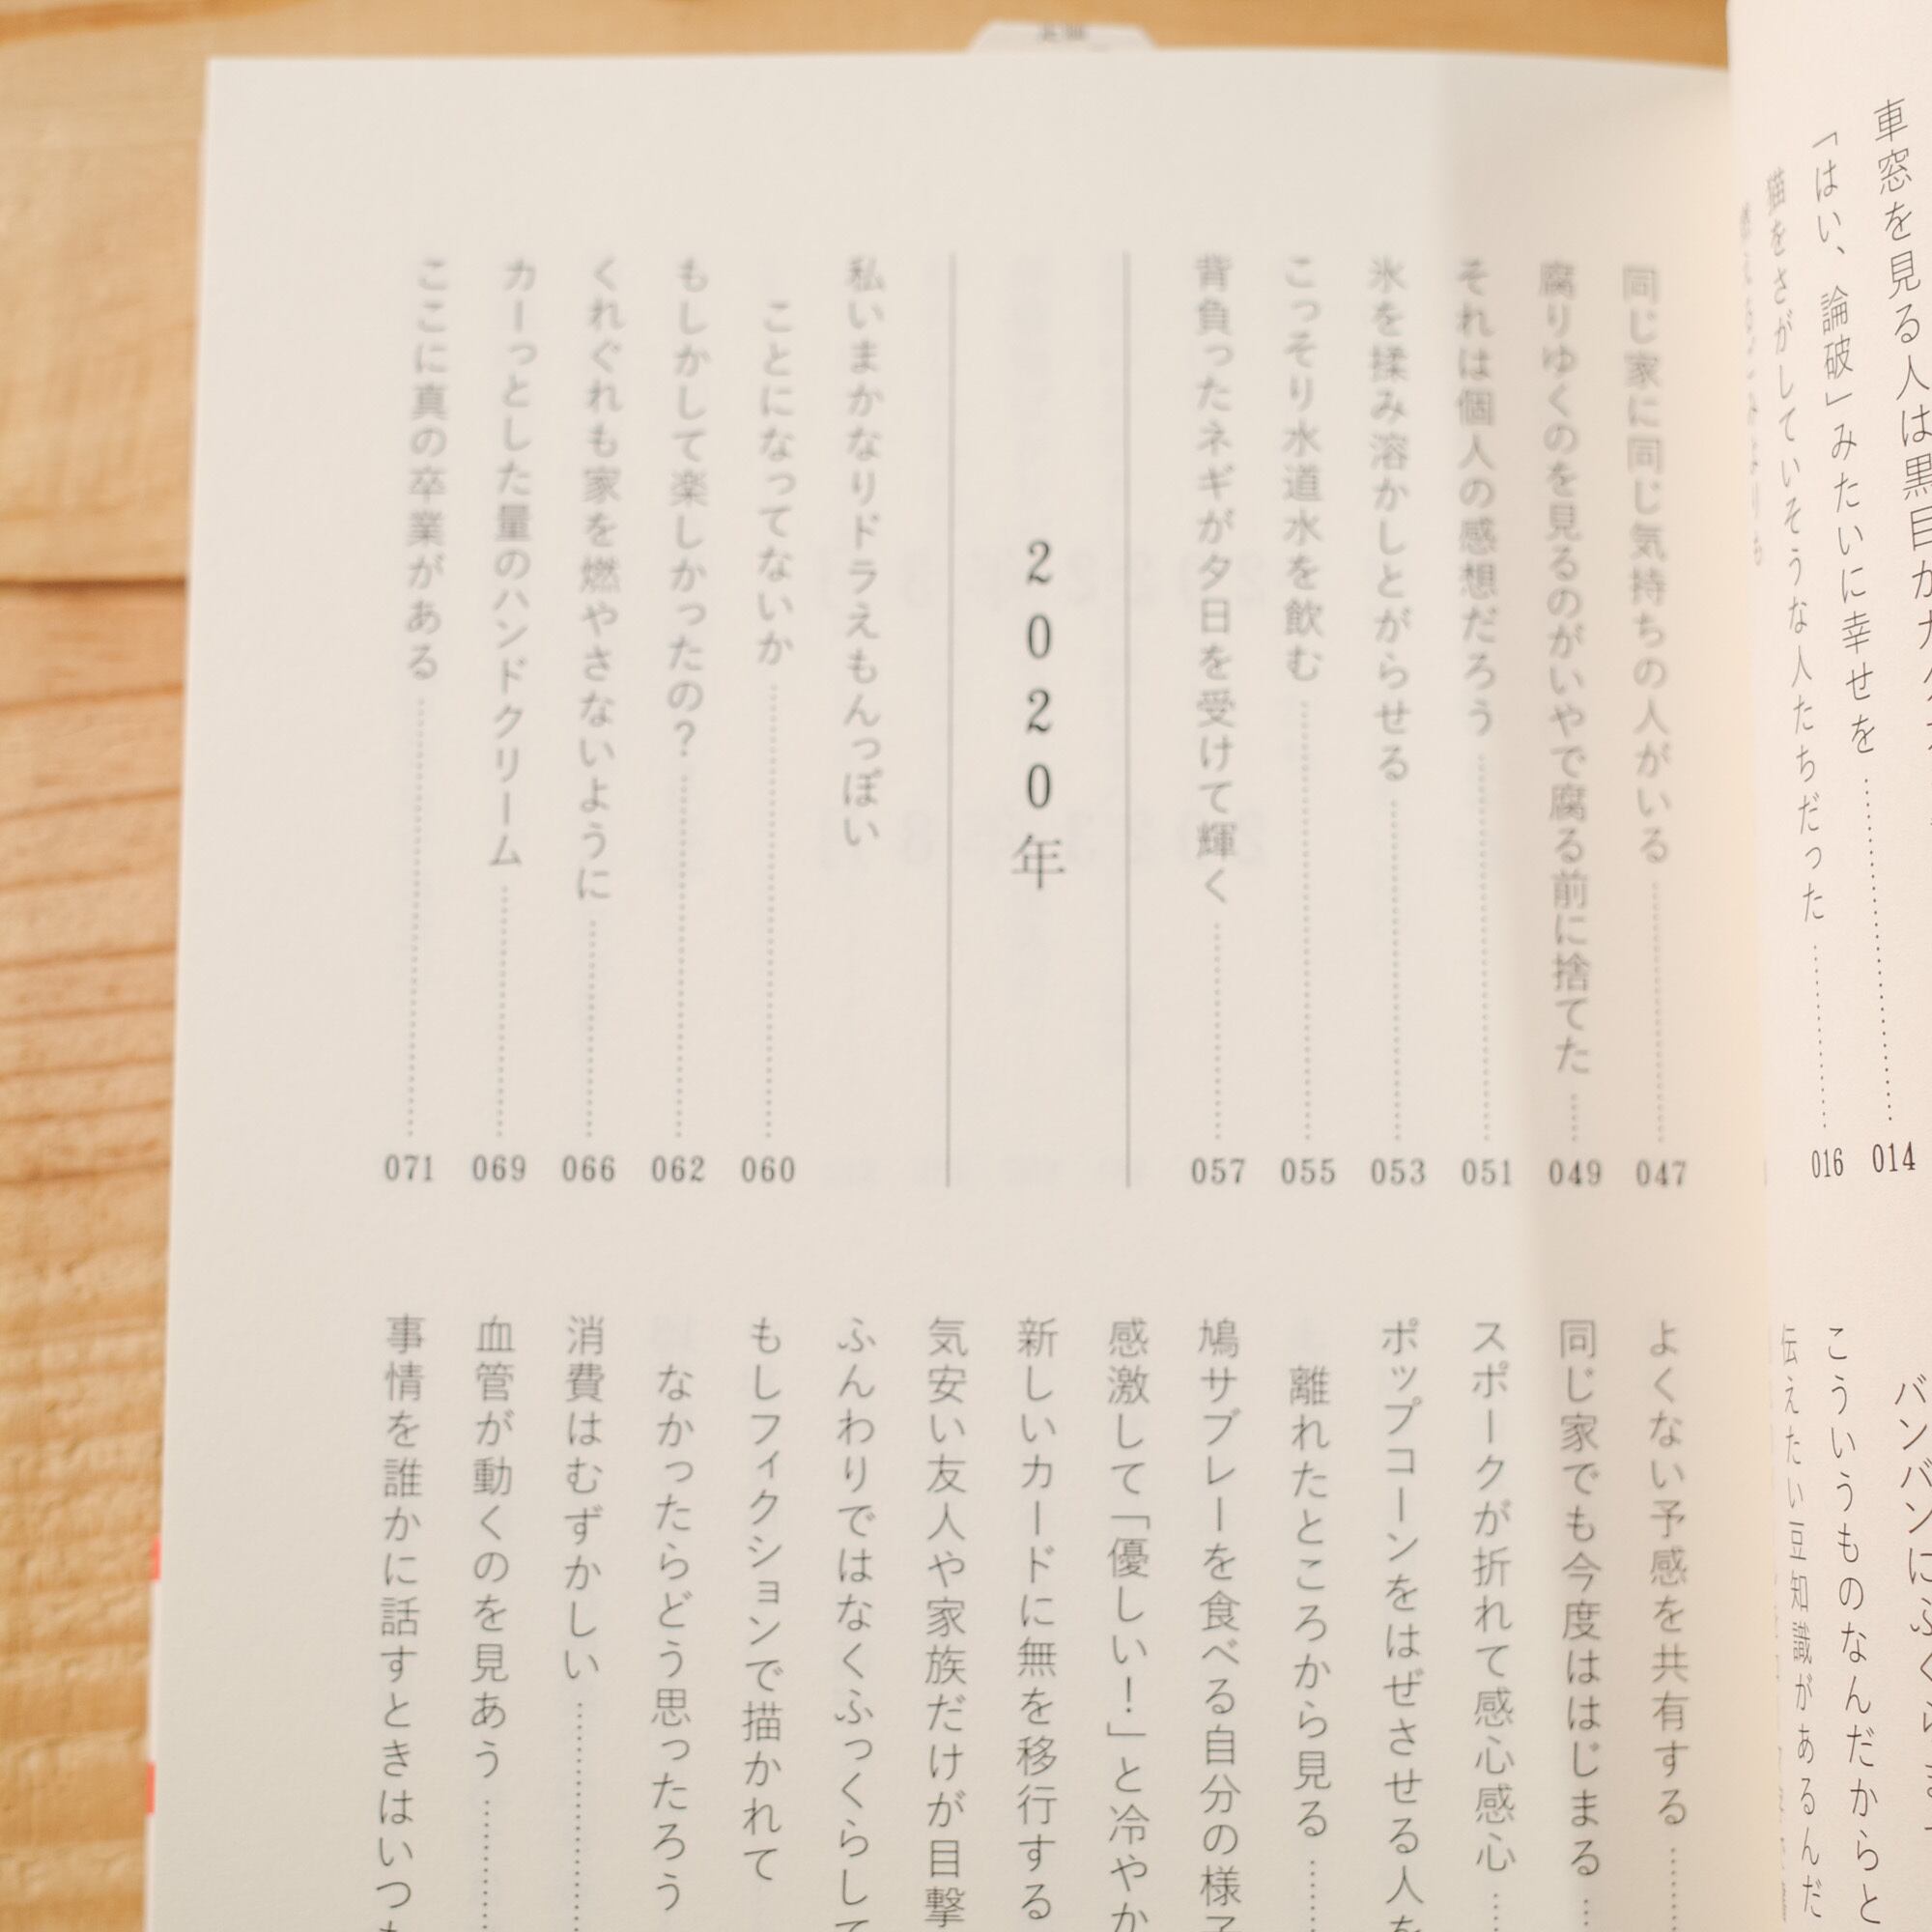 車窓を見る人は黒目が
014
「はい、論破」みたいに幸せを
016
猫をさがしていそうな人たちだった
バンバンにふくら
こういうものなんだからと
伝えたい豆知識があるんだ
同じ家に同じ気持ちの人がいる 047
腐りゆくのを見るのがいやで腐る前に捨てた 049
それは個人の感想だろう 051
氷を揉み溶かしとがらせる 053
こっそり水道水を飲む 055
背負ったネギが夕日を受けて輝く 057
2020年
私いまかなりドラえもんっぽい
ことになってないか 060
もしかして楽しかったの? 062
くれぐれも家を燃やさないように 066
カーっとした量のハンドクリーム 069
ここに真の卒業がある 071
よくない予感を共有する
同じ家でも今度ははじまる
スポークが折れて感心感心
ポップコーンをはぜさせる人を
離れたところから見る
鳩サブレーを食べる自分の様子
感激して「優しい!」と冷やか
新しいカードに無を移行する
気安い友人や家族だけが目撃
ふんわりではなくふっくらして
もしフィクションで描かれて
なかったらどう思ったろう
消費はむずかしい
血管が動くのを見あう
事情を誰かに話すときはいつも